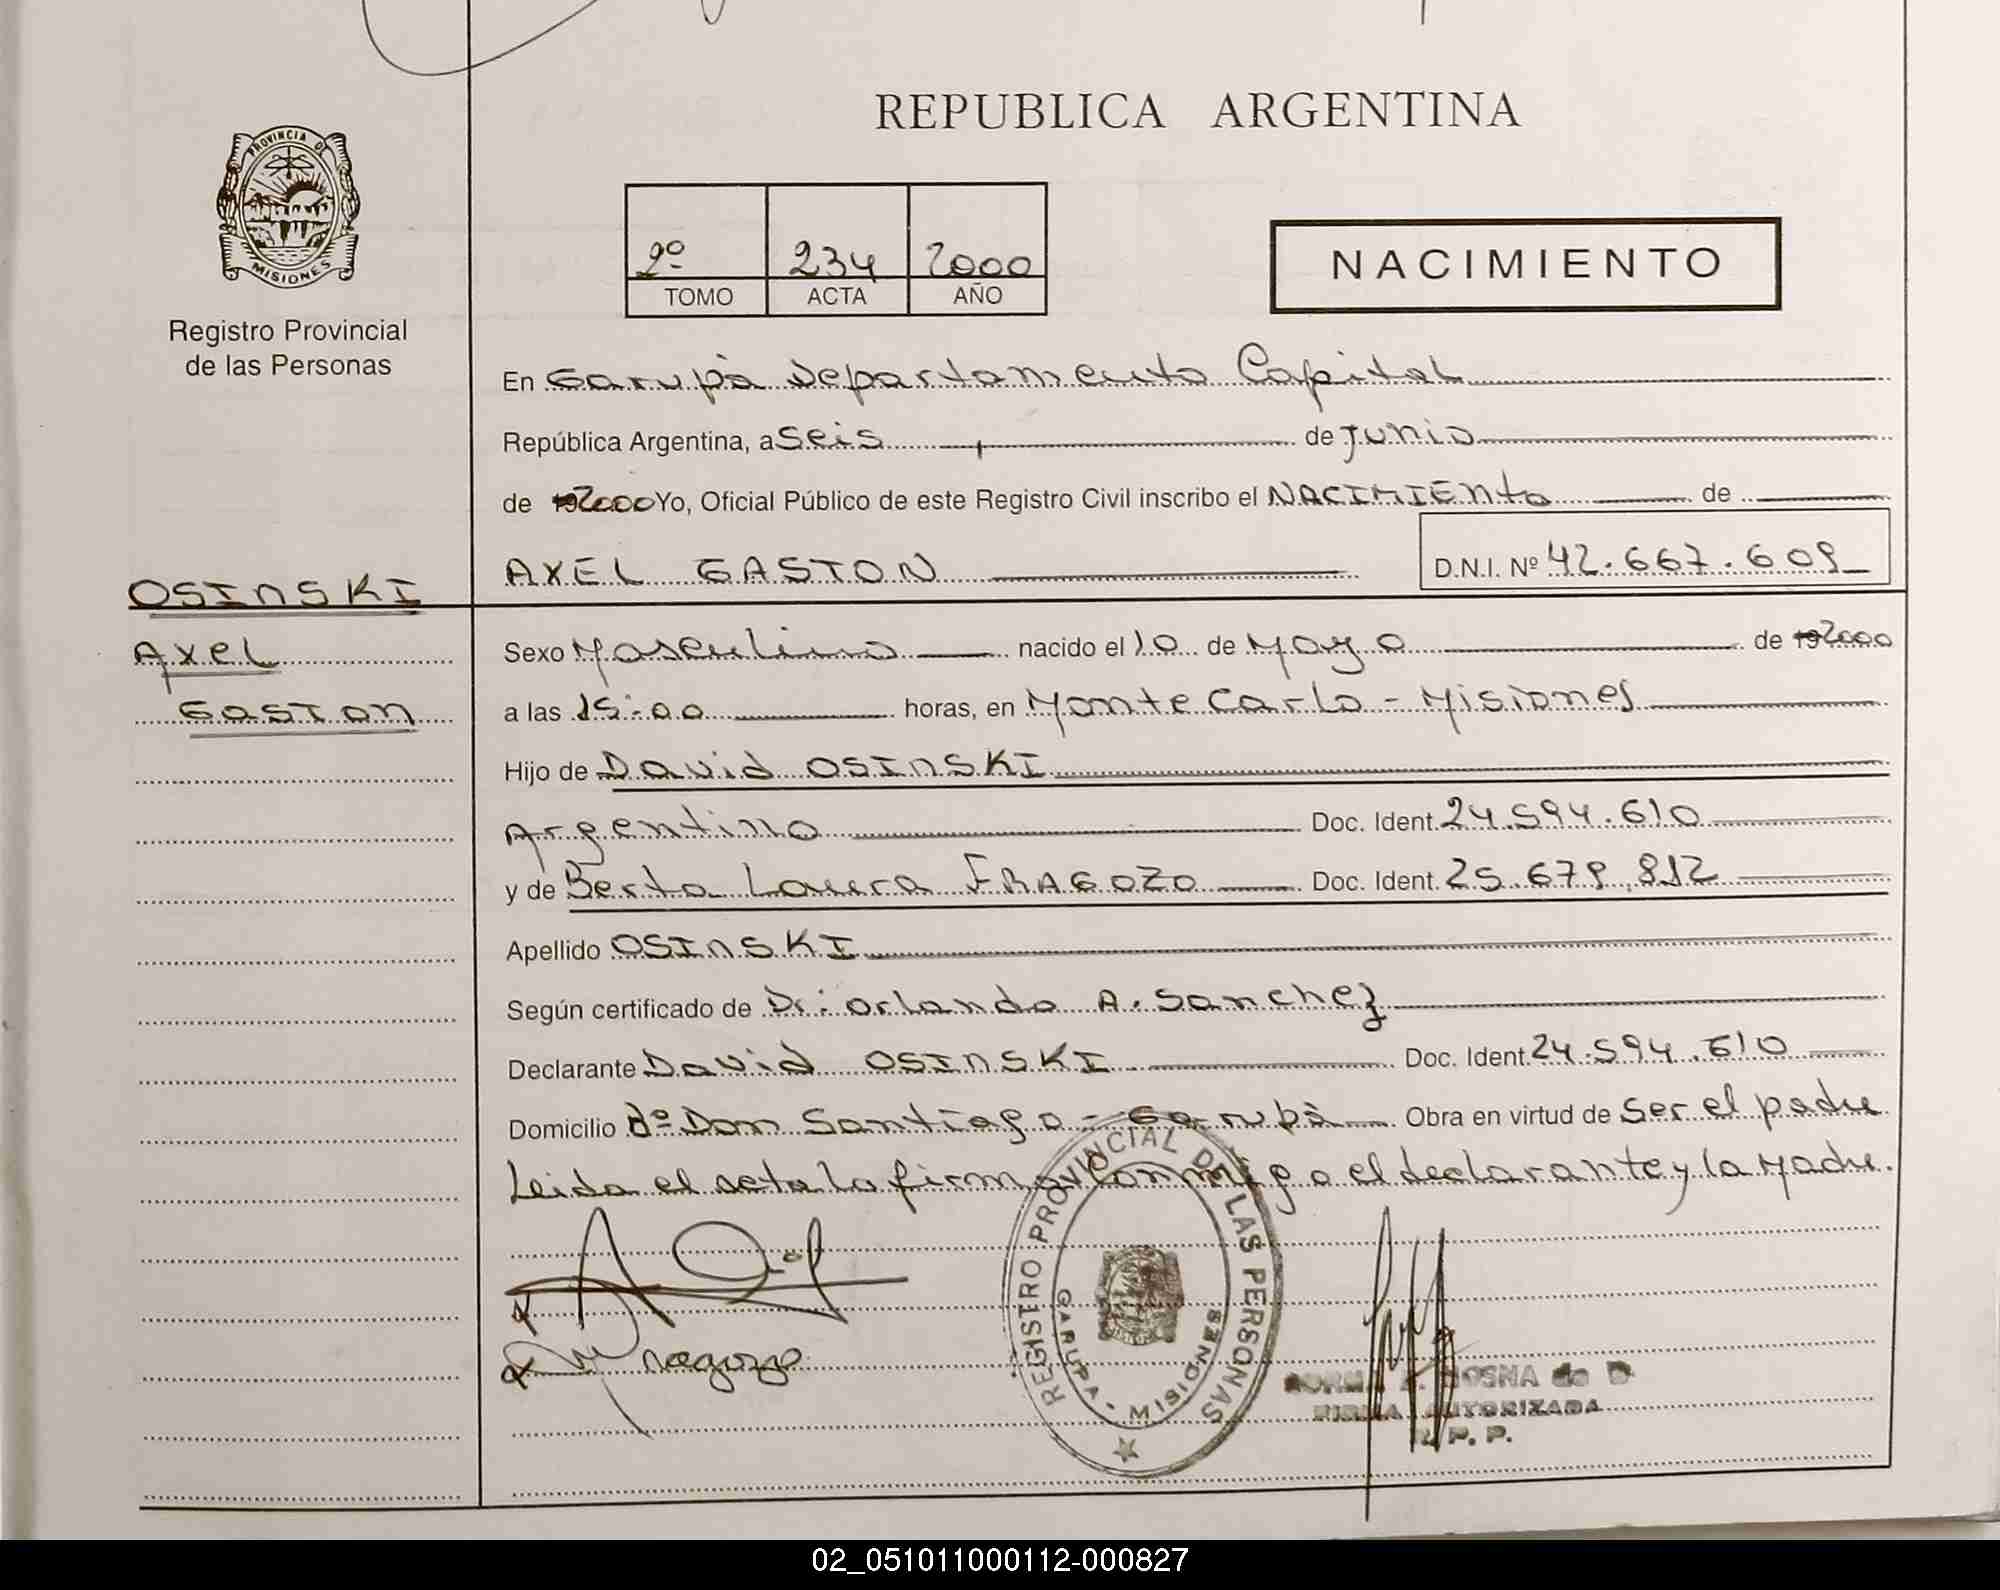 REPUBLICA ARGENTINA
PROVINCIA DE
MISIONES
Registro Provincial
de las Personas
2º 234 2000
TOMO ACTA AÑO
NACIMIENTO
En Garupà Departamento Capital
República Argentina, a seis de Junio
de 192000 Yo, Oficial Público de este Registro Civil inscribo el NACIMIENto de
AXEL GASTON D.N.I. Nº 42.667.609
OSINSKI
Axel
GASTON
Sexo Masculino nacido el 10 de Mayo de 192000
a las 15:00 horas, en Monte Carlo - Misiones
Hijo de David OSINSKI
Argentino Doc. Ident. 24.594.610
y de Berta Laura FRAGOZO Doc. Ident. 25.679.812
Apellido OSINSKI
Según certificado de Dr: Orlando A. Sanchez
Declarante David OSINSKI Doc. Ident. 24.594.610
Domicilio Bº Don Santiago - Garupà Obra en virtud de ser el padre
Leida el acta la firman conmigo el declarante y la Madre.
REGISTRO PROVINCIAL DE LAS PERSONAS
GARUPA - MISIONES
FIRMA AUTORIZADA
R. P. P.
02_051011000112-000827